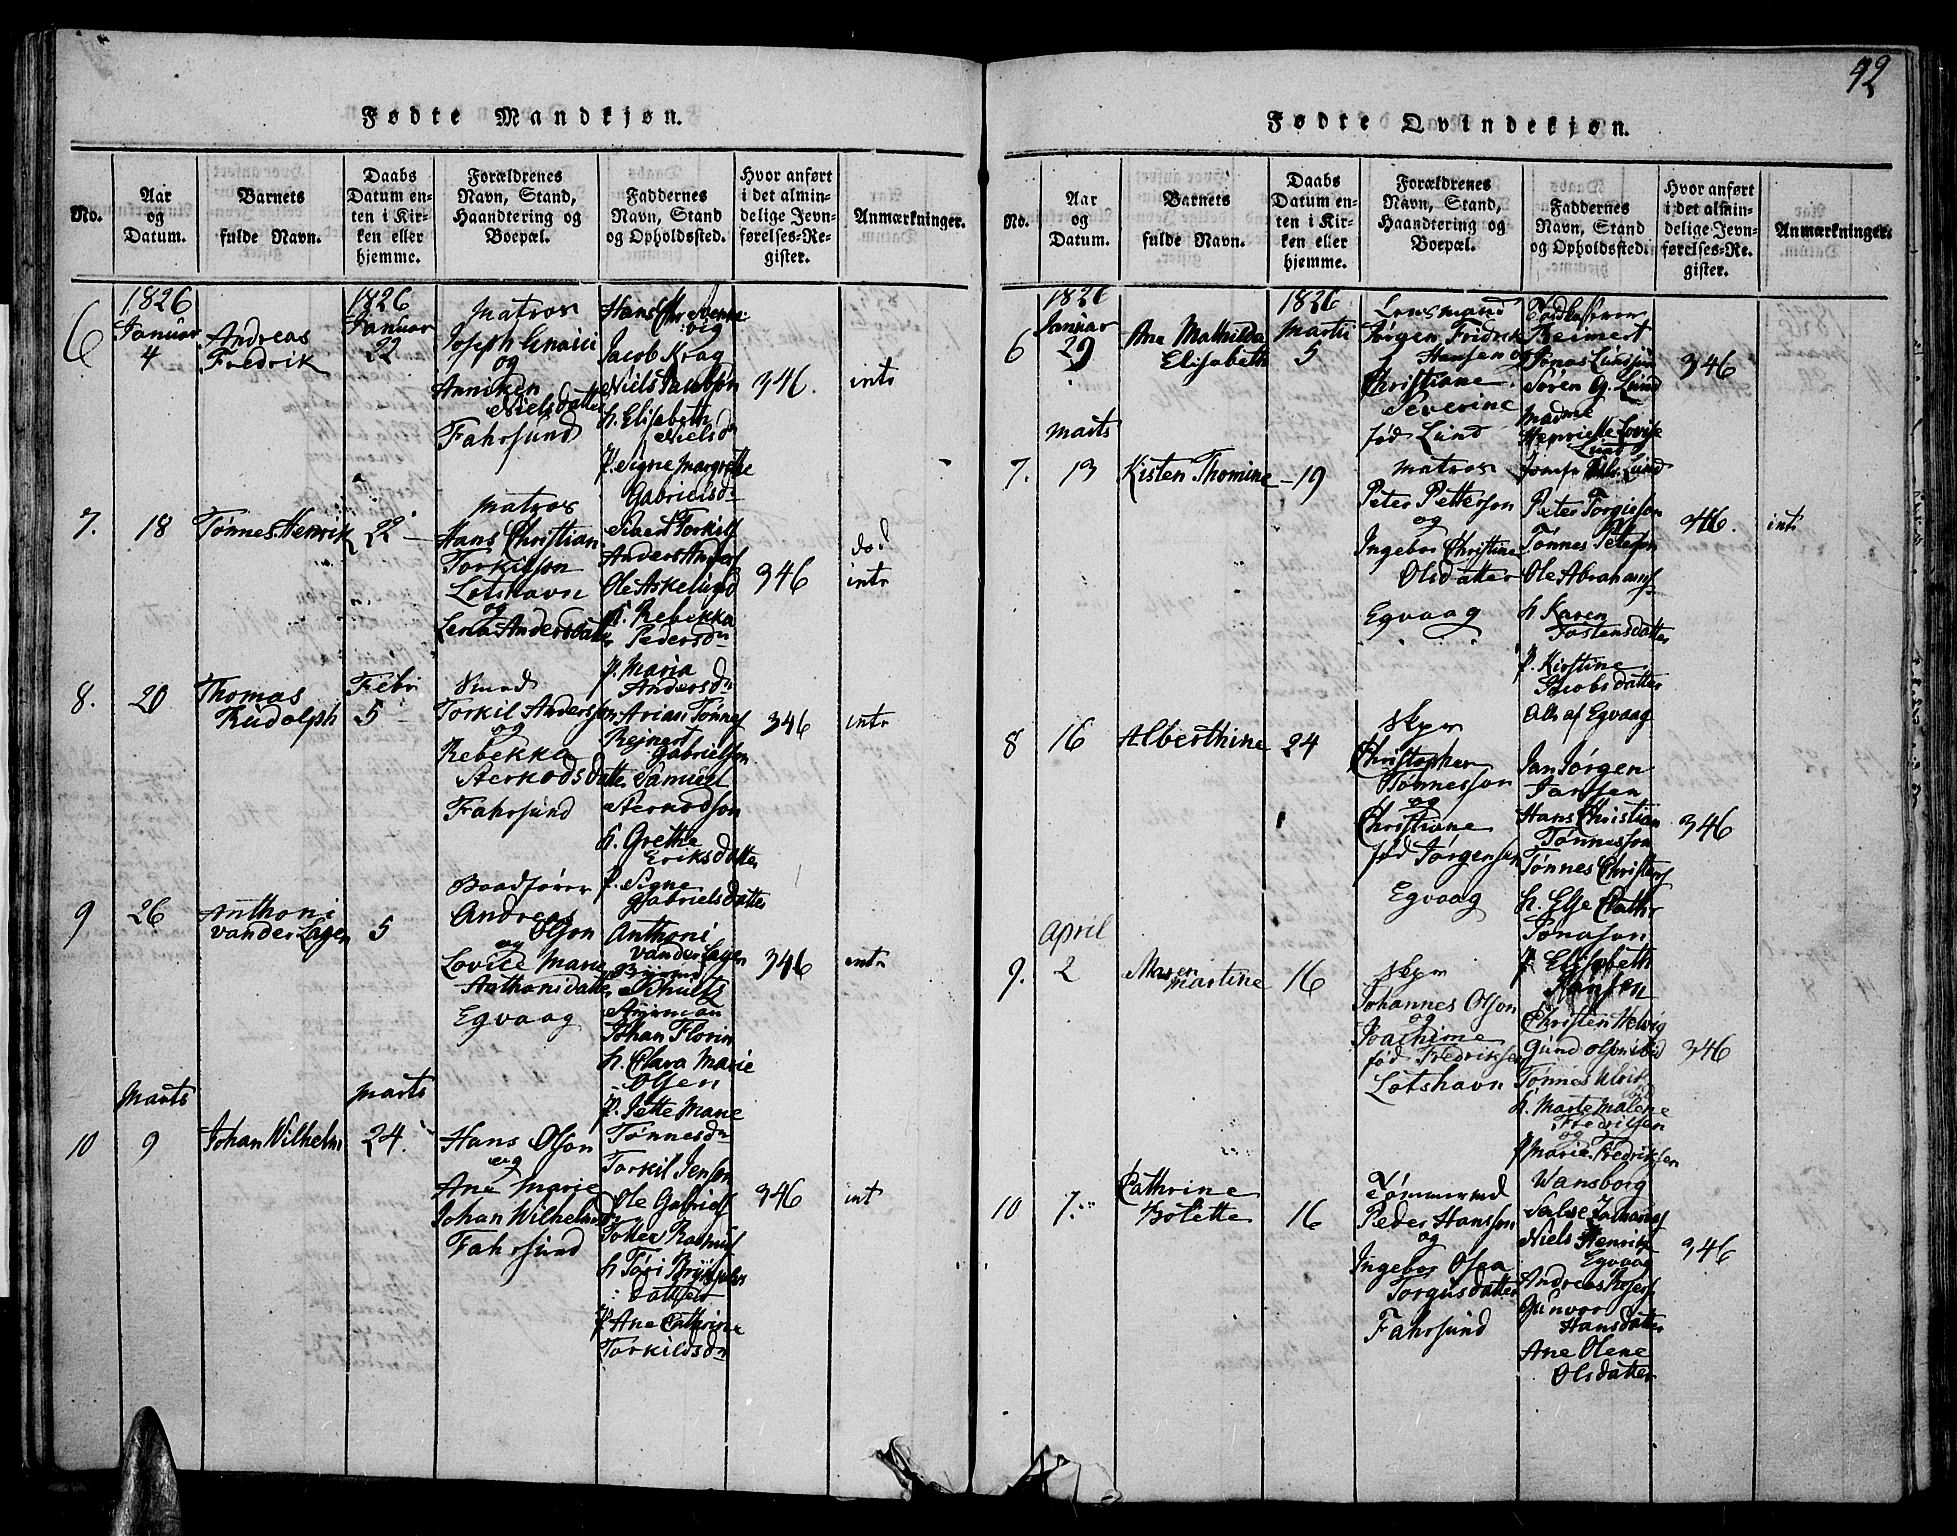 42
Fødte Mandkjøn.
No.
Aar
og
Datum.
Barnets
fulde Navn.
Daabs
Datum en-
ten i Kir-
ken eller
hjemme.
Forældrenes
Navn, Stand,
Haandtering og
Boepæl.
Faddernes
Navn, Stand
og Opholdssted.
Hvor anført
i det almin-
delige Jevn-
førelses-Re-
gister.
Anmærkninger.
6
1826
Januar
4
Andreas
Fredrik
1826
Januar
22
Matros
Joseph
og
Anniken
Nielsdatter
Fahrsund
Hans Chr
Jacob Krag
Niels Jacobson
h. Elisabeth
Nielsdr
p. Signe Margrethe
Gabrielsdr
346.
intr
7.
18
Tønnes Henrik
22
Matros
Hans Christian
Torkilson
Lotshavn
og
Lena Andersdatter
Torkils
Anders
Ole Askelund
h. Rebekka
Pedersdr
p. Maria
Andersdr
346
død
intr
8.
20
Thomas
Rudolph
Febr
5
Smed
Torkil Anderson
og
Rebekka
Sterkodsdatter
Fahrsund
Arian Tønnes
Rejnert
Gabrielson
Samuel
Sterkodson
h. Grethe
Eriksdatter
p. Signe
Gabrielsdatter
346
intr
9
26
Anthoni
vander Lagen
5
Baadfører
Andreas
Olson
og
Lovice Marie
Anthonisdatter
Egvaag
Anthoni
vander Lagen
Schultz
Styrman
Johan Florin
h. Clara Marie
Olsen
p. Jette Marie
Tønnesdr
346
intr
10
Marts
9
Johan Wilhelm
Marts
24.
Hans Olson
og
Ane Marie
Johan Wilhelmsdr
Fahrsund
Torkil Jenson
Ole Gabriels
Totter Rasmus
h Tori
datter
p Ane Cathrine
Torkildsdr
346
int
Fødte Qvindekjøn.
No.
Aar
og
Datum.
Barnets
fulde Navn.
Daabs
Datum en-
ten i Kir-
ken eller
hjemme.
Forældrenes
Navn, Stand,
Haandtering og
Boepæl.
Faddernes
Navn, Stand
og Opholdssted.
Hvor anført
i det almin-
delige Jevn-
førelses-Re-
gister.
Anmærkninger.
6
1826
Januar
29
Ane Mathilda
Elisabeth
1826
Martii
5
Lensmand
Jørgen Fridrik
Hansen og
Christiane
Severine
fød Lund
Toldkasserer
Reimert
Jonas Lund
Søren G. Lund
Madme
Henriette Lovise
Lund
Jomfr Lund
346
7.
Marts
13
Kisten Thomine
19
Matros
Peter Petterson
og
Ingebor Christine
Olsdatter
Egvaag
Peter Torgieson
Tønnes Peterson
Ole Abrahams
h Karen
Tostensdatter
p. Kirstine
Jacobsdatter
Alle af Egvaag
346.
intr
8
16
Alberthine
24
Skpr
Christopher
Tønnesson
og
Christiane
fød Jørgensen
Egvaag
Jan Jørgen
Jansen
Hans Christian
Tønnesson
Tønnes Christens
h. Else Cathr
Tøneson
p Elisabeth
Hansen
346
9.
April
2
Maren
Martine
16
Skpr
Johannes Olson
og
Joachime
fød Fredriksen
Lotshavn
Christen Helvig
Gund Olson
Tønnes Ulrik
h. Marte Malene
Fredriksen
og
p Marie Fredriksen
346
10
7.
Cathrine
Bolette
16
Tømmermd
Peder Hansson
og
Ingebor Olea
Torgusdatter
Fahrsund
Wansborg
Salve
Niels Henrik
Egvaag
Andreas
Gunvor
Hansdatter
Ane Olene
Olsdatter
346